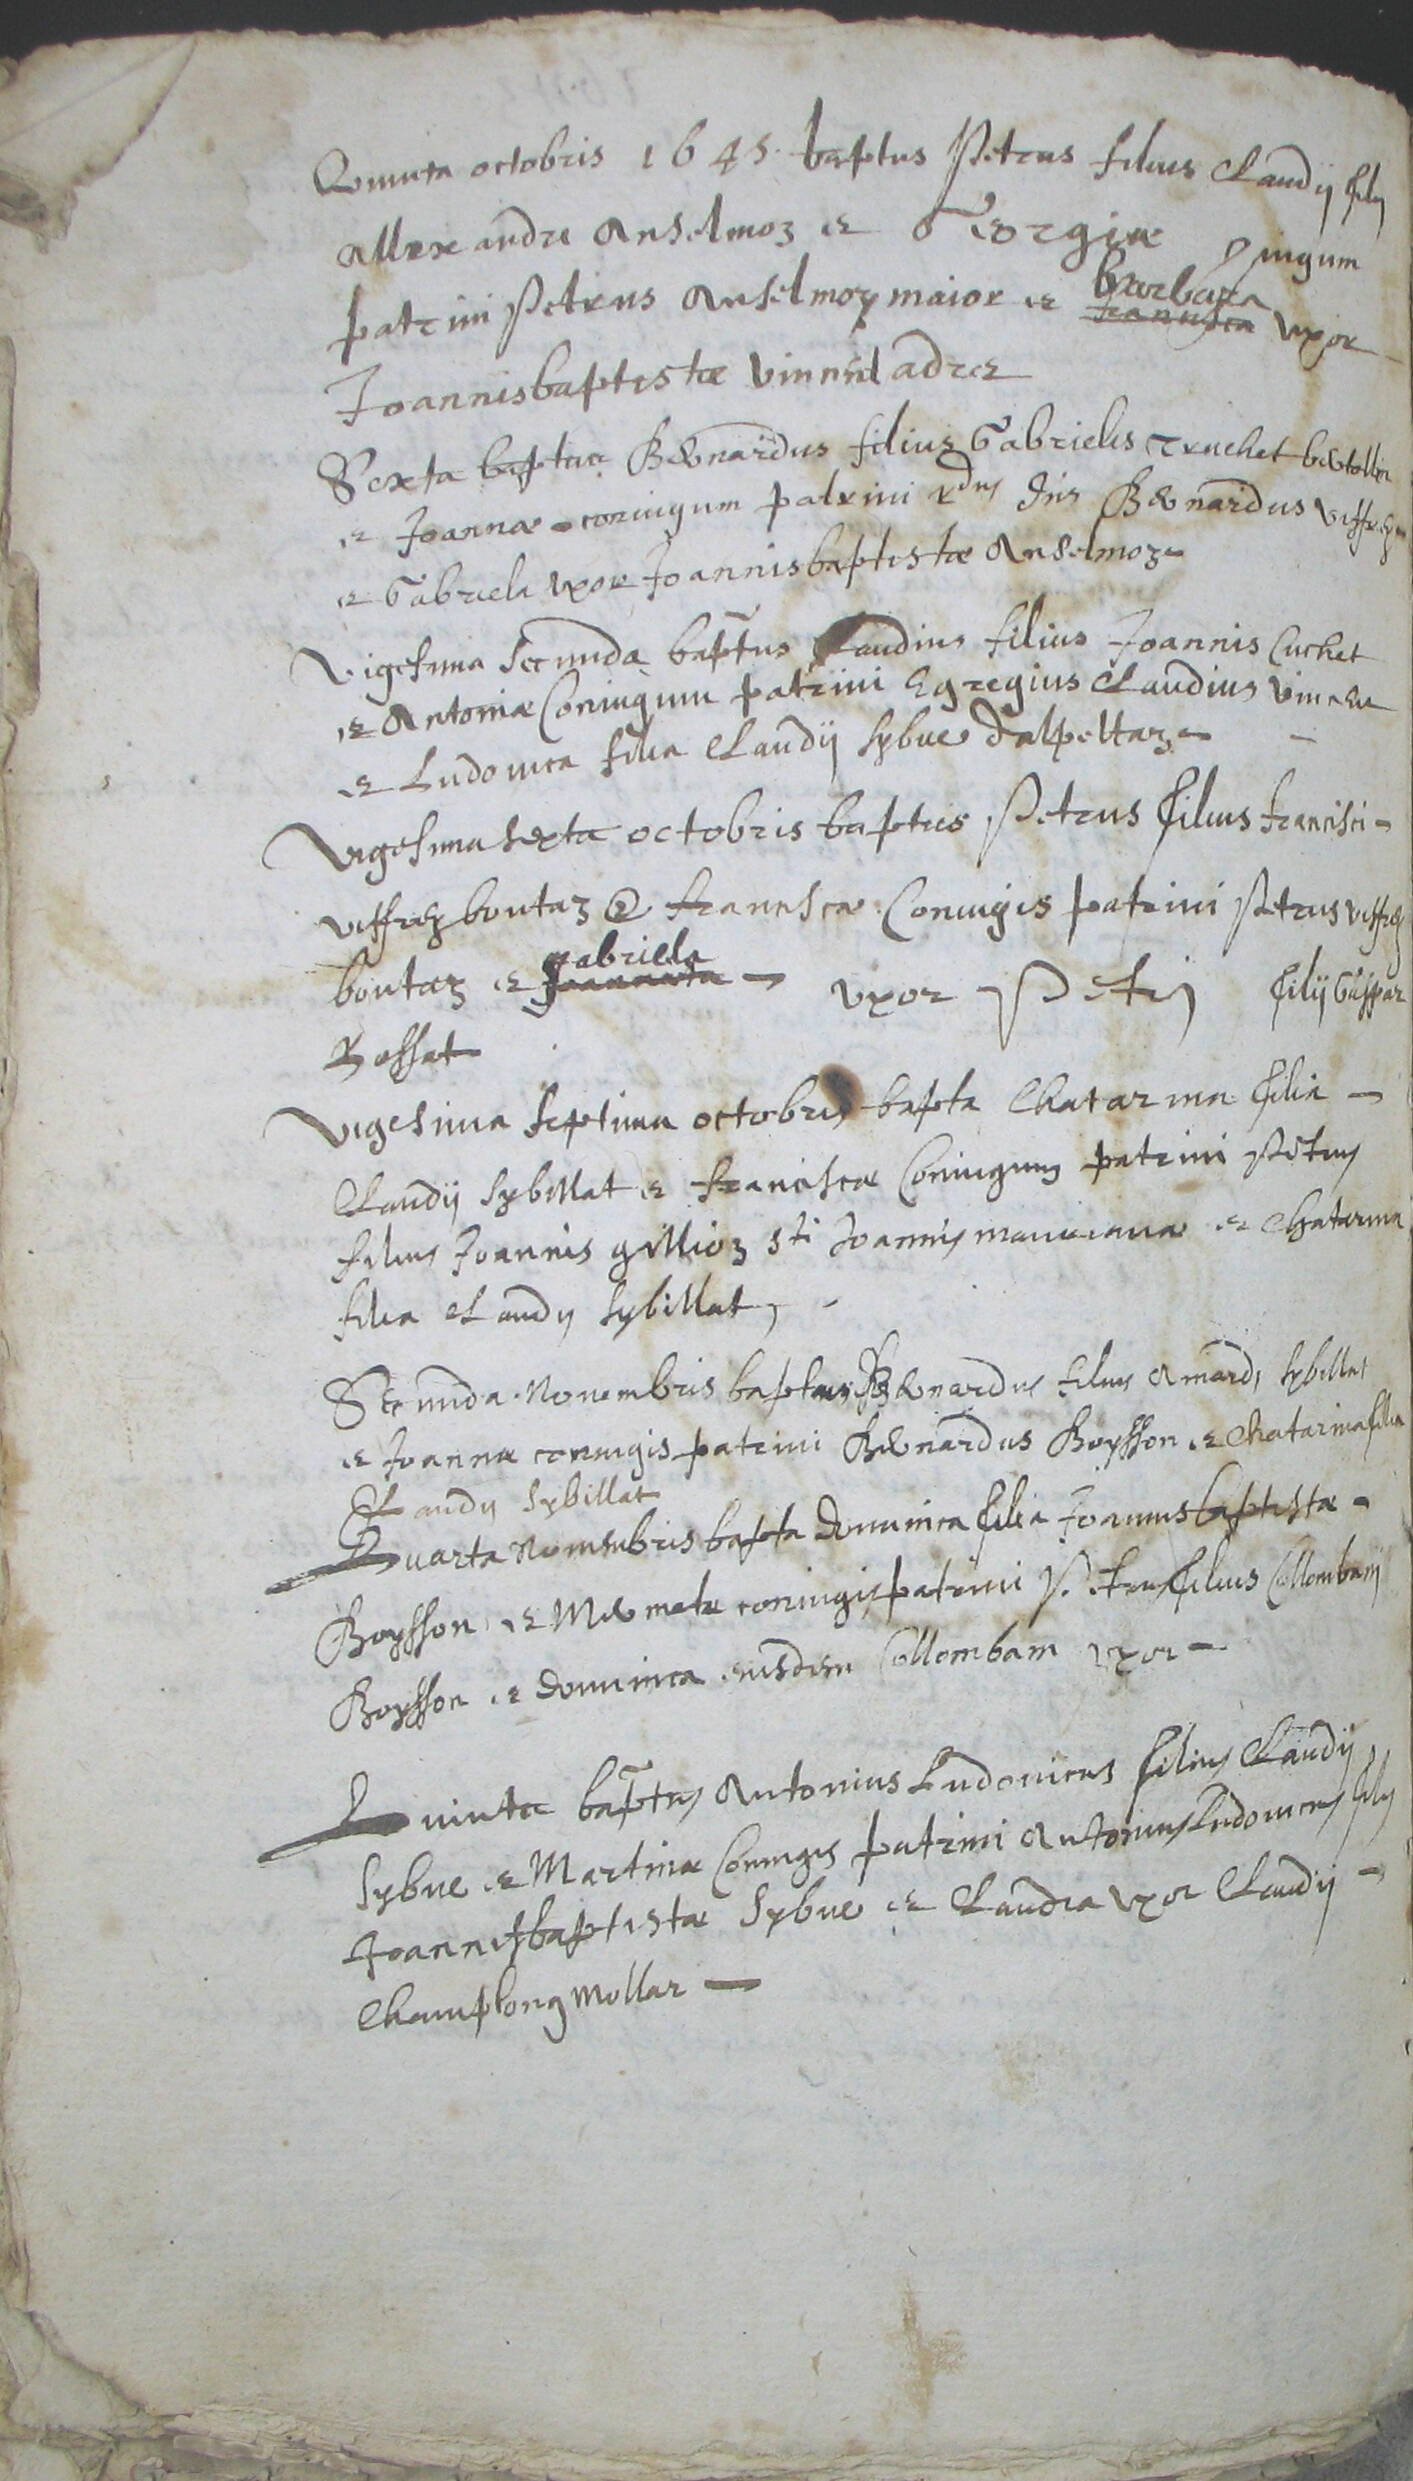 Quinta octobris 1645 baptus Petrus filius Claudij filij
Allexandri Anselmoz et Georgiæ conjugum
patrini Petrus Anselmoz maior et Barbara francisca uxor
Joannisbaptistæ Vincend adret
Sexta baptus Bernardus filius Gabrielis Truchet bertollin
et Joannæ coniugum patrini rdus dns Bernardus Viffrey
et Gabriela uxor Joannisbaptistæ Anselmoz
Vigesima secunda baptus Claudius filius Joannis Cuchet
et Antoniæ Coniugum patrini Egregius Claudius
et Ludovica filia Claudij Sybue dalpettaz
Vigesima sexta octobris baptus Petrus filius francisci
Viffrey boutaz et franciscæ Coniugis patrini Petrus Viffrey
boutaz et gabriela uxor Petri filij Gaspar
Bossat
Vigesima septima octobris bapta Chatarina filia
Claudij Sybillat et franciscæ Coniugum patrini Petrus
filius Joannis gillioz sti Joannis et Chatarina
filia Claudij Sybillat
Secunda Novembris baptus Bernardus filius Aimardi Sybillat
et Joannæ coniugis patrini Bernardus Boysson et Chatarina filia
Claudij Sybillat
Quarta Novembris bapta dominica filia Joannisbaptistæ
Boysson et coniugis patrini Petrus filius Collombani
Boysson et dominica eiusdem Collombani uxor
Quinta baptus Antonius Ludovicus filius Claudij
Sybue et Martinæ Coniugis patrini Antonius Ludovicus filius
Joannisbaptistæ Sybue et Claudia uxor Claudij
Champlong Mollar